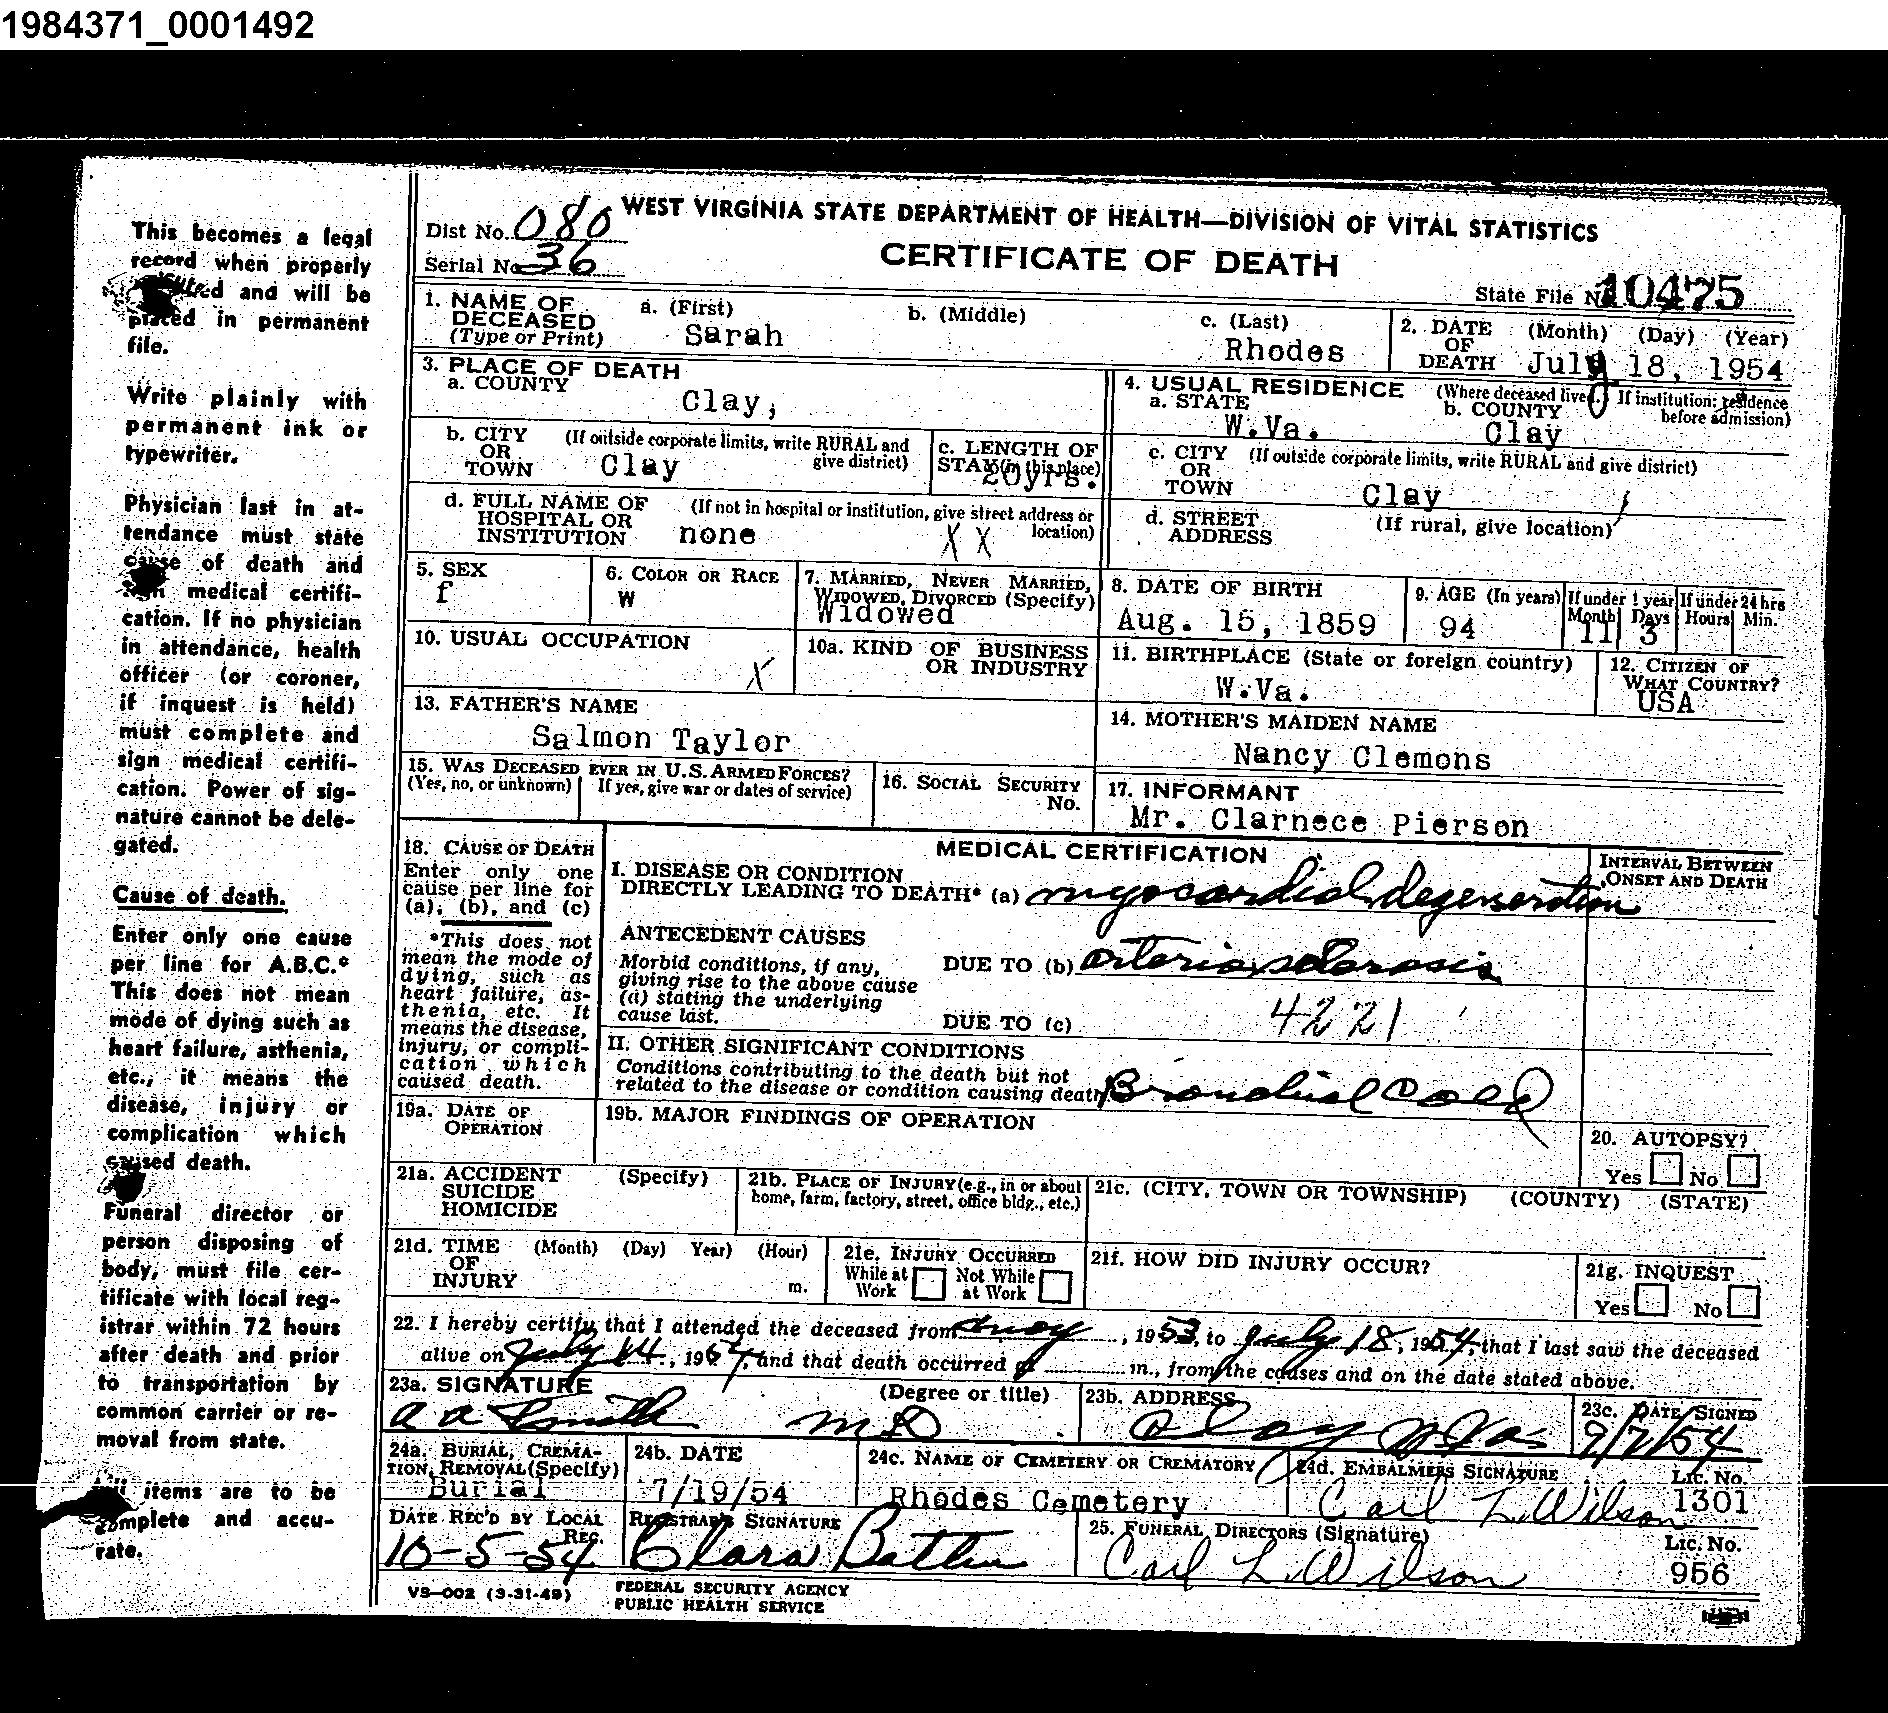 1984371_0001492
This becomes a legal
record when properly
and will be
placed in permanent
file.
Write plainly with
permanent ink or
typewriter.
Physician last in at-
tendance must state
cause of death and
sign medical certifi-
cation. If no physician
in attendance, health
officer (or coroner,
if inquest is held)
must complete and
sign medical certifi-
cation. Power of sig-
nature cannot be dele-
gated.
Cause of death.
Enter only one cause
per line for A.B.C.*
This does not mean
mode of dying such as
heart failure, asthenia,
etc., it means the
disease, injury or
complication which
caused death.
Funeral director or
person disposing of
body, must file cer-
tificate with local reg-
istrar within 72 hours
after death and prior
to transportation by
common carrier or re-
moval from state.
All items are to be
complete and accu-
rate.
WEST VIRGINIA STATE DEPARTMENT OF HEALTH—DIVISION OF VITAL STATISTICS
Dist No. 080
Serial No. 36
CERTIFICATE OF DEATH
State File No. 10475
1. NAME OF DECEASED (Type or Print) a. (First) Sarah b. (Middle) c. (Last) Rhodes
2. DATE OF DEATH (Month) (Day) (Year) July 18, 1954
3. PLACE OF DEATH
a. COUNTY Clay,
4. USUAL RESIDENCE (Where deceased lived. If institution: residence before admission)
a. STATE W.Va. b. COUNTY Clay
b. CITY OR TOWN (If outside corporate limits, write RURAL and give district) Clay
c. LENGTH OF STAY (in this place) 20yrs.
c. CITY OR TOWN (If outside corporate limits, write RURAL and give district) Clay
d. FULL NAME OF HOSPITAL OR INSTITUTION (If not in hospital or institution, give street address or location) none X X
d. STREET ADDRESS (If rural, give location)
5. SEX f
6. COLOR OR RACE W
7. MARRIED, NEVER MARRIED, WIDOWED, DIVORCED (Specify) Widowed
8. DATE OF BIRTH Aug. 15, 1859
9. AGE (In years) 94 If under 1 year Months 11 Days 3 If under 24 hrs Hours Min.
10. USUAL OCCUPATION X
10a. KIND OF BUSINESS OR INDUSTRY
11. BIRTHPLACE (State or foreign country) W.Va.
12. CITIZEN OF WHAT COUNTRY? USA
13. FATHER'S NAME Salmon Taylor
14. MOTHER'S MAIDEN NAME Nancy Clemons
15. WAS DECEASED EVER IN U.S. ARMED FORCES? (Yes, no, or unknown) If yes, give war or dates of service)
16. SOCIAL SECURITY No.
17. INFORMANT Mr. Clarnece Pierson
18. CAUSE OF DEATH
Enter only one
cause per line for
(a), (b), and (c)
*This does not
mean the mode of
dying, such as
heart failure, as-
thenia, etc. It
means the disease,
injury, or compli-
cation which
caused death.
MEDICAL CERTIFICATION
INTERVAL BETWEEN ONSET AND DEATH
I. DISEASE OR CONDITION
DIRECTLY LEADING TO DEATH* (a) myocardial degeneration
ANTECEDENT CAUSES
Morbid conditions, if any,
giving rise to the above cause
(a) stating the underlying
cause last.
DUE TO (b) arteriosclerosis
DUE TO (c) 4221
II. OTHER SIGNIFICANT CONDITIONS
Conditions contributing to the death but not
related to the disease or condition causing death. Bronchial Cold
19a. DATE OF OPERATION
19b. MAJOR FINDINGS OF OPERATION
20. AUTOPSY? Yes No
21a. ACCIDENT SUICIDE HOMICIDE (Specify)
21b. PLACE OF INJURY (e.g., in or about home, farm, factory, street, office bldg., etc.)
21c. (CITY, TOWN OR TOWNSHIP) (COUNTY) (STATE)
21d. TIME OF INJURY (Month) (Day) Year) (Hour) m.
21e. INJURY OCCURRED While at Work Not While at Work
21f. HOW DID INJURY OCCUR?
21g. INQUEST Yes No
22. I hereby certify that I attended the deceased from, 1953, to July 18, 1954, that I last saw the deceased
alive on July 14, 1954, and that death occurred at m., from the causes and on the date stated above.
23a. SIGNATURE (Degree or title) a a Smith M D
23b. ADDRESS Clay W Va.
23c. DATE SIGNED 9/7/54
24a. BURIAL, CREMATION, REMOVAL (Specify) Burial
24b. DATE 7/19/54
24c. NAME OF CEMETERY OR CREMATORY Rhodes Cemetery
24d. EMBALMERS SIGNATURE Carl L. Wilson Lic. No. 1301
DATE REC'D BY LOCAL REG. 10-5-54
REGISTRAR'S SIGNATURE Clara
25. FUNERAL DIRECTORS (Signature) Carl L. Wilson Lic. No. 956
VS-002 (3-31-49)
FEDERAL SECURITY AGENCY
PUBLIC HEALTH SERVICE